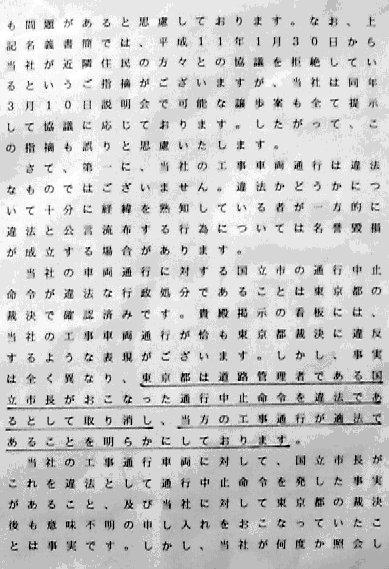 も問題があると思慮しております。なお、上
記名義書簡では、平成11年1月30日から
当社が近隣住民の方々との協議を拒絶してい
るというご指摘がございますが、当社は同年
3月10日説明会で可能な譲歩案も全て提示
して協議に応じております。したがって、こ
の指摘も誤りと思慮いたします。
さて、第一に、当社の工事車両通行は違法
なものではございません。違法かどうかにつ
いて十分に経緯を熟知している者が一方的に
違法と公言流布する行為については名誉毀損
が成立する場合があります。
当社の車両通行に対する国立市の通行中止
命令が違法な行政処分であることは東京都の
裁決で確認済みです。貴殿掲示の看板には、
当社の工事車両通行が恰も東京都裁決に違反
するような表現がございます。しかし、事実
は全く異なり、東京都は道路管理者である国
立市長がおこなった通行中止命令を違法であ
るとして取り消し、当方の工事通行が適法で
あることを明らかにしております。
当社の工事通行車両に対して、国立市長が
これを違法として通行中止命令を発した事実
があること、及び当社に対して東京都の裁決
後も意味不明の申し入れをおこなっていたこ
とは事実です。しかし、当社が何度か照会し